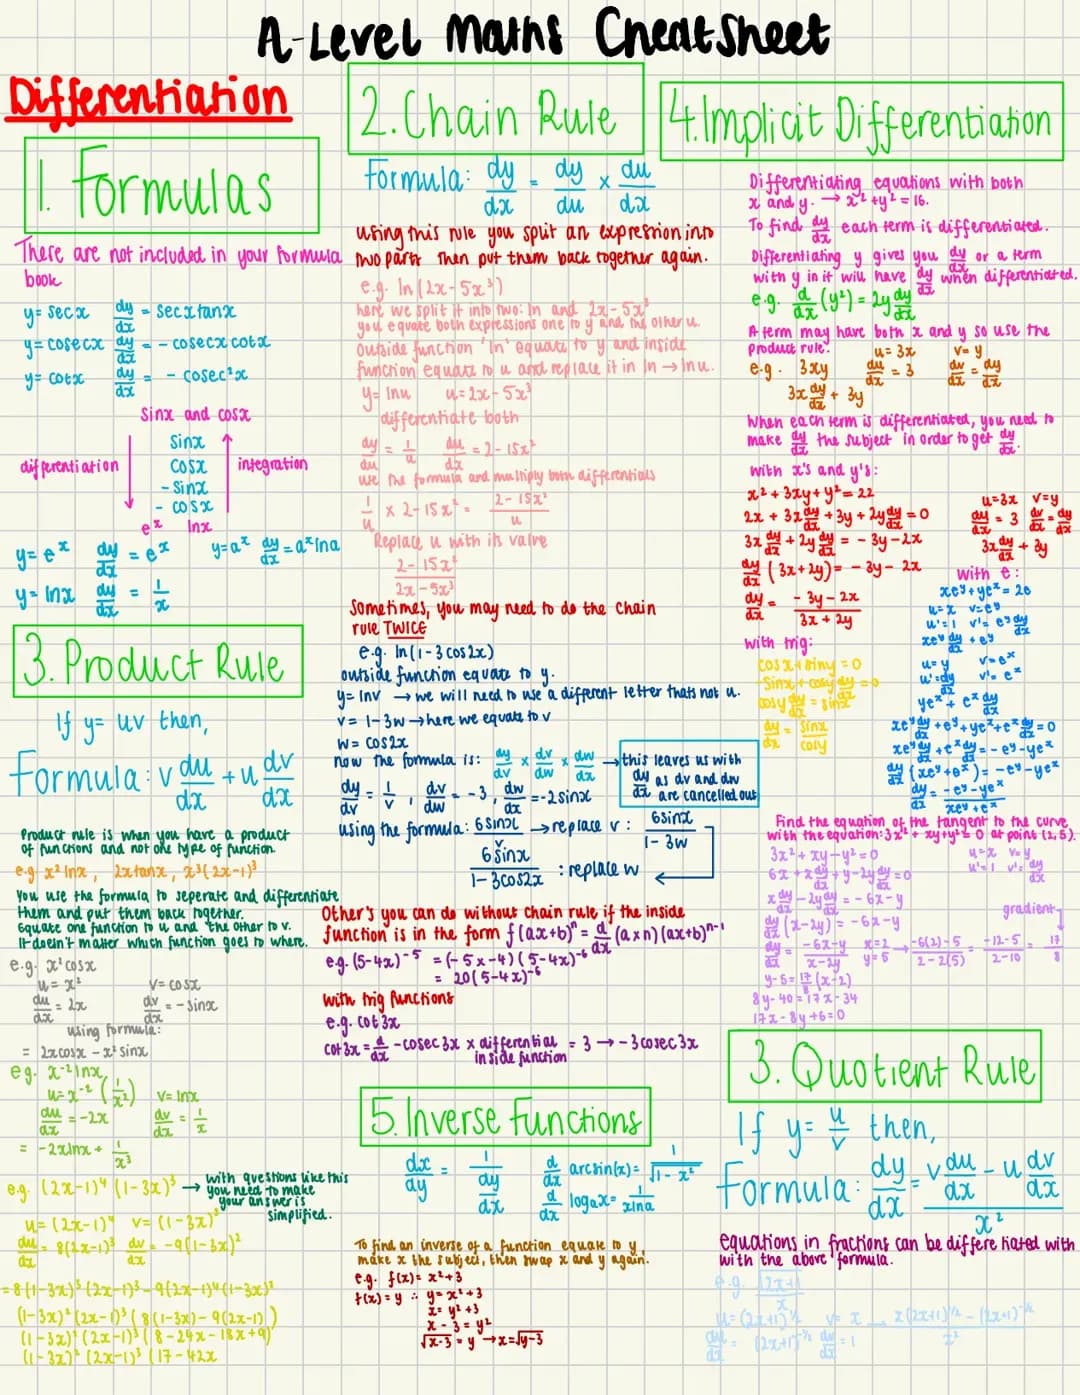 A-Level Maths CheatSheet
Differentiation
1. Formulas
There are not included in your formula
book
y= secx dy/dx = secxtanx
y= cosecx dy/dx = - cosecx cotx
y= cotx dy/dx = - cosec²x
Sinx and cosx
differentiation
Sinx
cosx
- Sinx
- cosx
integration
eˣ lnx
y= eˣ dy/dx = eˣ y=aˣ dy/dx = aˣlna
y= lnx dy/dx = 1/x
3. Product Rule
If y= uv then,
Formula: v du/dx + u dv/dx
Product rule is when you have a product
of functions and not one type of function.
e.g x² lnx, 2xtanx, x³(2x-1)³
You use the formula to seperate and differentiate
them and put them back together.
Equate one function to u and the other to v.
It doesn't matter which function goes to where.
e.g. x²cosx
u= x² v= cosx
du/dx = 2x dv/dx = - sinx
using formula:
= 2xcosx - x² sinx
eg. x⁻²lnx
u= x⁻² (1/x²) v= lnx
du/dx = -2x dv/dx = 1/x
= -2xlnx + 1/x³
e.g. (2x-1)⁴ (1-3x)³ → with questions like this
you need to make
your answer is
simplified.
u= (2x-1)⁴ v= (1-3x)³
du/dx = 8(2x-1)³ dv/dx = -9(1-3x)²
= 8(1-3x)³(2x-1)³ - 9(2x-1)⁴(1-3x)²
(1-3x)²(2x-1)³ (8(1-3x) - 9(2x-1))
(1-3x)²(2x-1)³ (8-24x-18x+9)
(1-3x)² (2x-1)³ (17-42x
2. Chain Rule
Formula: dy/dx = dy/du × du/dx
using this rule you split an expression into
two parts then put them back together again.
e.g. ln(2x-5x³)
here we split it into two: ln and 2x-5x³
you equate both expressions one to y and the other u.
Outside function 'ln' equate to y and inside
function equate to u and replace it in ln → lnu.
y= lnu u= 2x-5x³
differentiate both
dy/du = 1/u du/dx = 2-15x²
use the formula and multiply both differentials
1/u × 2-15x² = 2-15x²/u
Replace u with its value
2-15x²/2x-5x³
Sometimes, you may need to do the chain
rule TWICE
e.g. ln(1-3cos2x)
outside function equate to y.
y= lnv → we will need to use a different letter thats not u.
v= 1-3w → here we equate to v
W= cos2x
now the formula is: dy/dv × dv/dw × dw/dx → this leaves us with
dy/dx as dv and dw
are cancelled out
dy/dv = 1/v, dv/dw = -3, dw/dx = -2sinx
using the formula: 6sinx/v → replace v: 6sinx/1-3w
6sinx/1-3cos2x : replace w
Other's you can do without chain rule if the inside
function is in the form f(ax+b)ⁿ = d/dx (a×n)(ax+b)ⁿ⁻¹
e.g. (5-4x)⁻⁵ = (-5×-4)(5-4x)⁻⁶
= 20(5-4x)⁻⁶
with trig functions
e.g. cot3x
cot3x = d/dx -cosec3x × differential inside function = 3 → -3cosec3x
5. Inverse Functions
dx/dy = 1/dy/dx
d/dx arcsin(x)= 1/√1-x²
d/dx logax= 1/xlna
To find an inverse of a function equate to y
make x the subject, then swap x and y again.
e.g. f(x)= x²+3
f(x)=y ∴ y= x²+3
x= y²+3
x-3 = y²
√x-3 = y → x=√y-3
4. Implicit Differentiation
Differentiating equations with both
x and y. → x²+y²=16.
To find dy/dx each term is differentiated.
Differentiating y gives you dy/dx or a term
with y in it will have dy/dx when differentiated.
e.g. d/dx (y²) = 2y dy/dx
A term may have both x and y so use the
product rule.
e.g. 3xy u= 3x v= y
du/dx = 3 dv/dx = dy/dx
3x dy/dx + 3y
When each term is differentiated, you need to
make dy/dx the subject in order to get dy/dx.
with x's and y's:
x²+3xy+y²=22 u=3x v=y
2x + 3x dy/dx + 3y + 2y dy/dx = 0 du/dx = 3 dv/dx = dy/dx
3x dy/dx + 2y dy/dx = -3y-2x 3x dy/dx + 3y
dy/dx (3x+2y) = -3y-2x
dy/dx = -3y-2x/3x+2y
with e:
xeʸ+yeˣ=26
u=x v=eʸ
u'=1 v'= eʸ dy/dx
xeʸ dy/dx + eʸ
u=y v=eˣ
u'=dy/dx v'= eˣ
yeˣ + eˣ dy/dx
xeʸ dy/dx + eʸ + yeˣ + eˣ dy/dx = 0
xeʸ dy/dx + eˣ dy/dx = -eʸ-yeˣ
dy/dx (xeʸ+eˣ) = -eʸ-yeˣ
dy/dx = -eʸ-yeˣ/xeʸ+eˣ
with trig:
cosx+siny=0
-Sinx + cosy dy/dx = 0
cosy dy/dx = sinx
dy/dx = sinx/cosy
Find the equation of the tangent to the curve
with the equation: 3x² + xy+y²= 0 at point (2,5).
3x²+xy-y²=0 u=x v=y
6x + x dy/dx + y - 2y dy/dx = 0 u'=1 v'= dy/dx
x dy/dx - 2y dy/dx = -6x-y
dy/dx (x-2y) = -6x-y
gradient
dy/dx = -6x-y/x-2y x=2 y=5 → -6(2)-5/2-2(5) = -12-5/2-10 = 17/8
y-5 = 17/8 (x-2)
8y-40 = 17x-34
17x-8y+6=0
3. Quotient Rule
If y= u/v then,
Formula: dy/dx = v du/dx - u dv/dx / x²
equations in fractions can be differentiated with
with the above formula.
e.g. √2x+1/x
u= (2x+1)^½ v= x x(2x+1)^½ - (2x+1)^-½ / x²
du/dx = (2x+1)^-½ dv/dx = 1